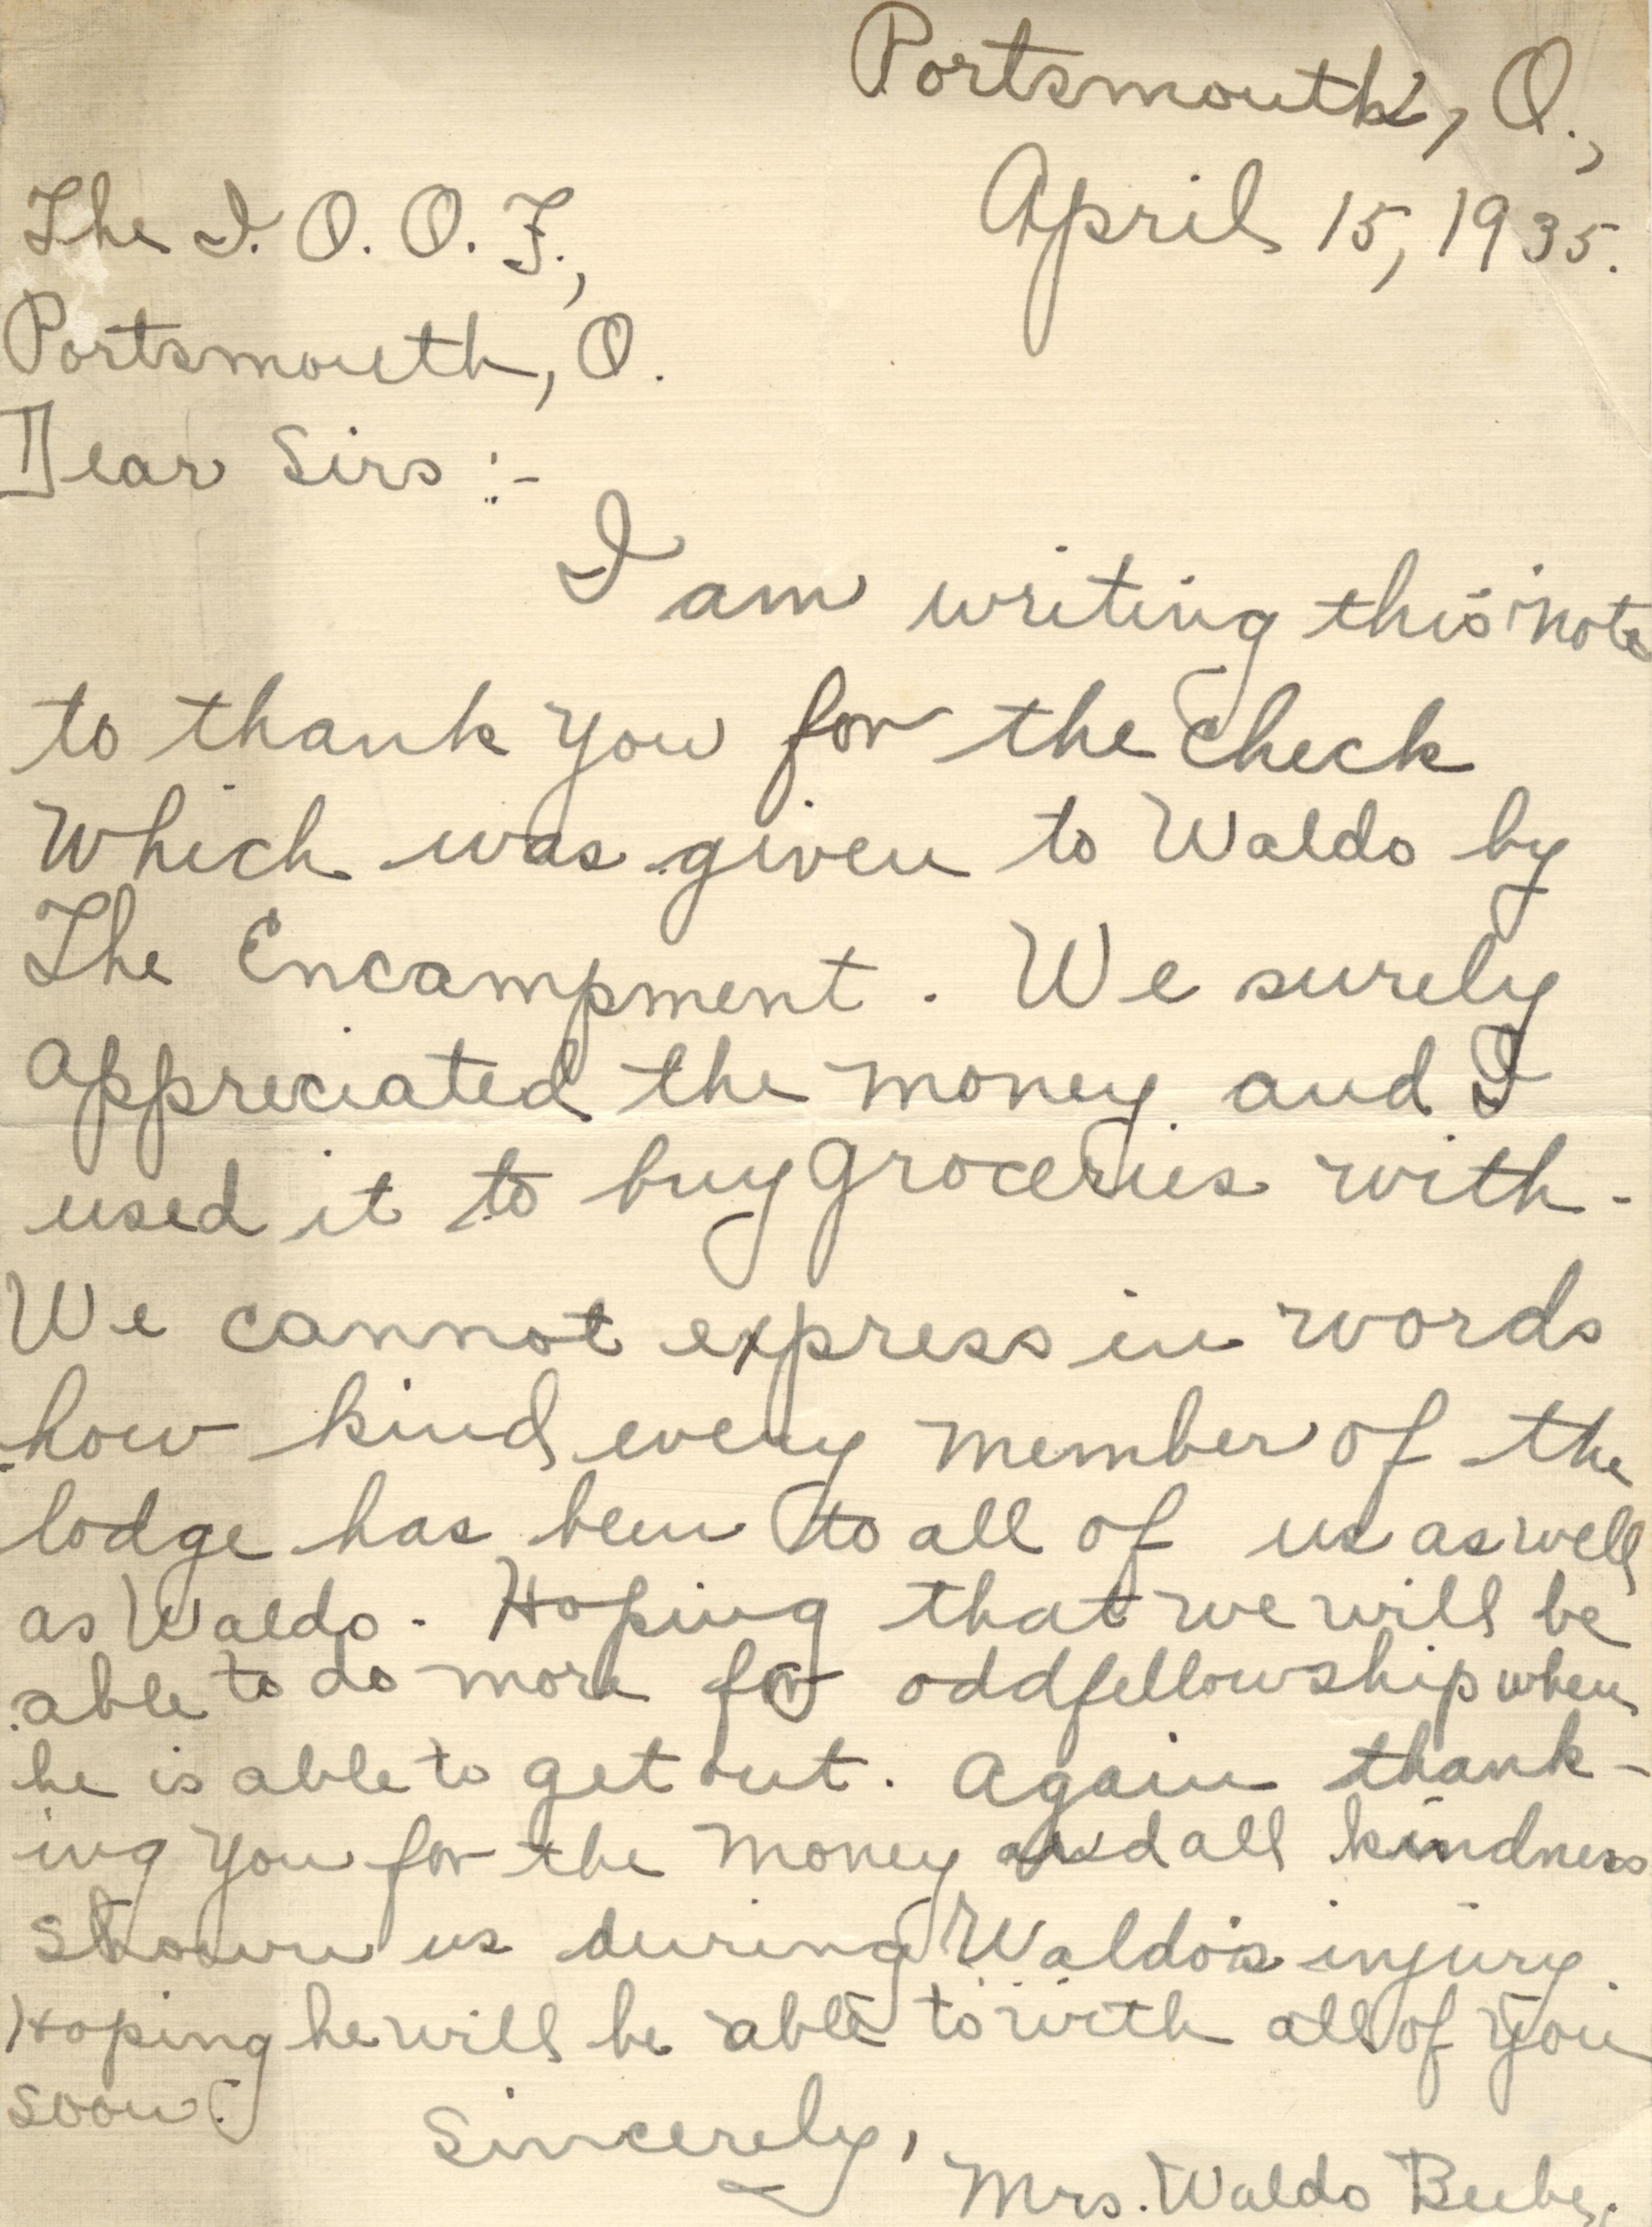 Portsmouth, O.,
April 15, 1935.
The I. O. O. F.,
Portsmouth, O.
Dear Sirs :-
I am writing this note
to thank you for the check
which was given to Waldo by
The Encampment. We surely
appreciated the money and I
used it to buy groceries with.
We cannot express in words
how kind every member of the
lodge has been to all of us as well
as Waldo. Hoping that we will be
able to do more for oddfellowship when
he is able to get out. Again thank-
ing you for the money and all kindness
shown us during Waldo's injury.
Hoping he will be able to with all of you
soon.
Sincerely,
Mrs. Waldo